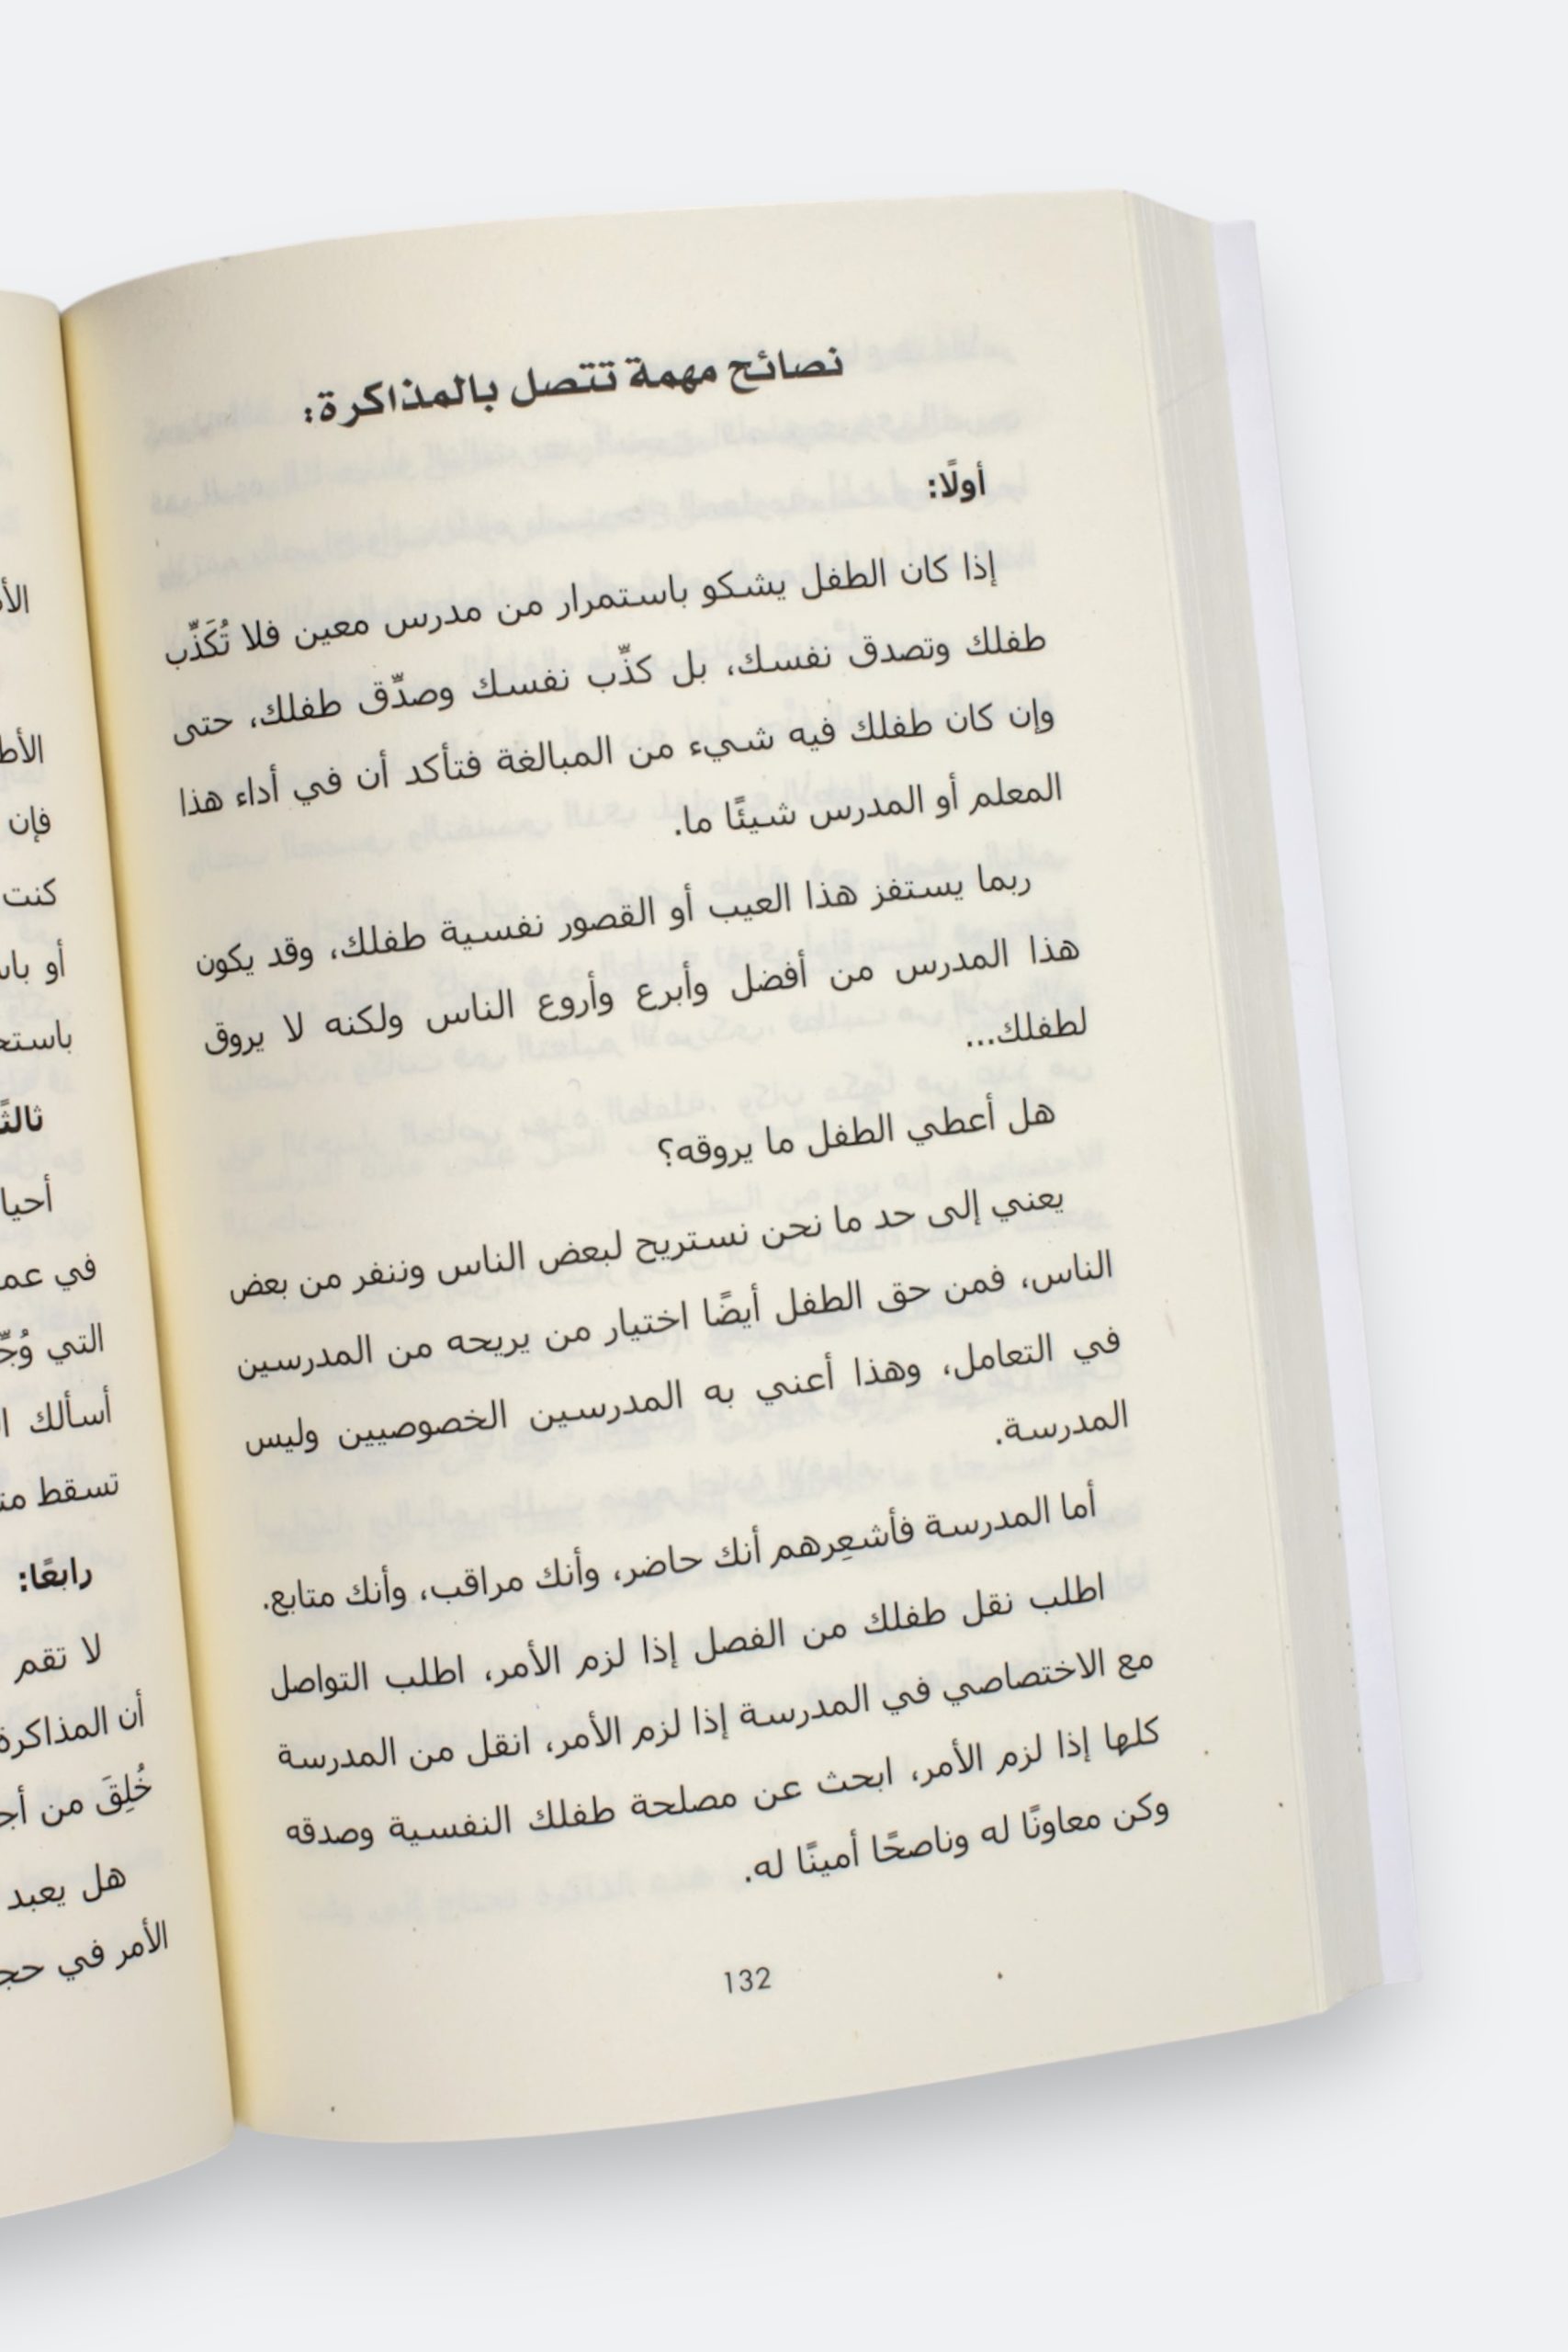 نصائح مهمة تتصل بالمذاكرة:
أولًا:
إذا كان الطفل يشكو باستمرار من مدرس معين فلا تُكَذِّب
طفلك وتصدق نفسك، بل كذِّب نفسك وصدِّق طفلك، حتى
وإن كان طفلك فيه شيء من المبالغة فتأكد أن في أداء هذا
المعلم أو المدرس شيئًا ما.
ربما يستفز هذا العيب أو القصور نفسية طفلك، وقد يكون
هذا المدرس من أفضل وأبرع وأروع الناس ولكنه لا يروق
لطفلك...
هل أعطي الطفل ما يروقه؟
يعني إلى حد ما نحن نستريح لبعض الناس وننفر من بعض
الناس، فمن حق الطفل أيضًا اختيار من يريحه من المدرسين
في التعامل، وهذا أعني به المدرسين الخصوصيين وليس
المدرسة.
أما المدرسة فأشعِرهم أنك حاضر، وأنك مراقب، وأنك متابع.
اطلب نقل طفلك من الفصل إذا لزم الأمر، اطلب التواصل
مع الاختصاصي في المدرسة إذا لزم الأمر، انقل من المدرسة
كلها إذا لزم الأمر، ابحث عن مصلحة طفلك النفسية وصدقه
وكن معاونًا له وناصحًا أمينًا له.
132
فإن
كنت
أو
في
التي
أسألك
تسقط
رابعًا:
لا تقم
أن المذاكرة
خُلِقَ من
هل يعبد
الأمر في